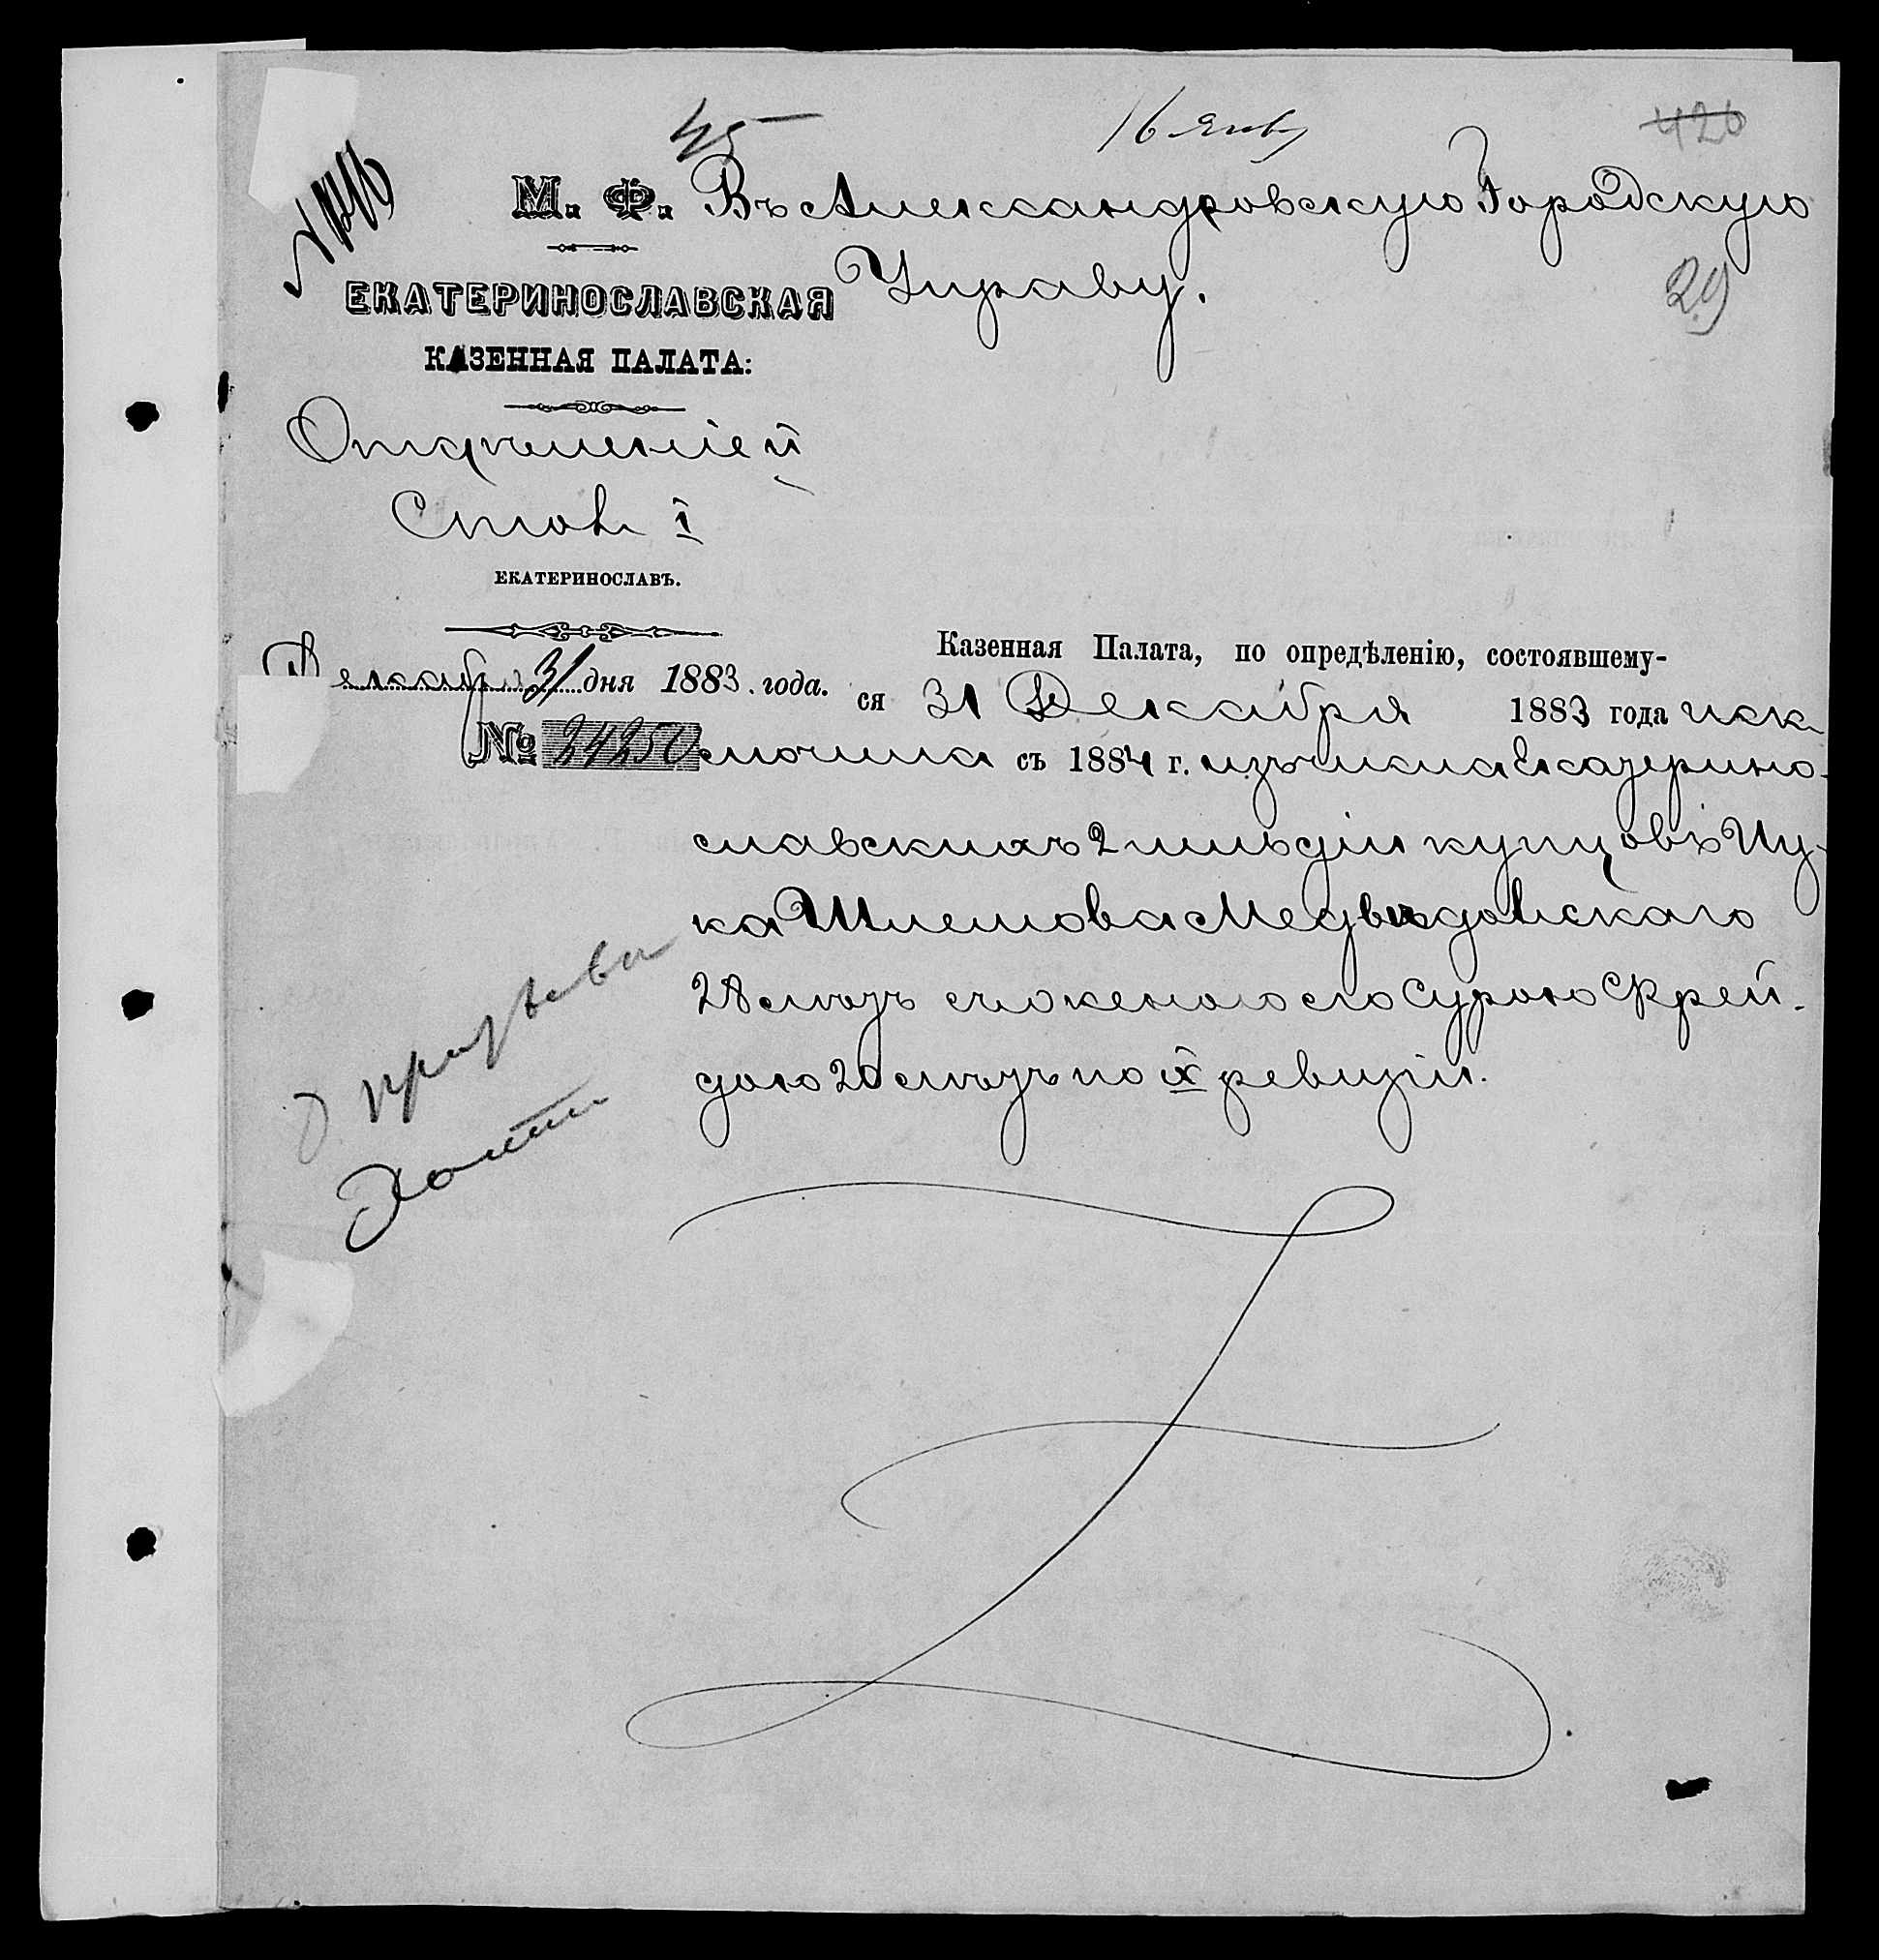 45
16 Янв
426
М. Ф.
Въ Александровскую Городскую
Управу.
29
ЕКАТЕРИНОСЛАВСКАЯ
КАЗЕННАЯ ПАЛАТА:
Отдѣленіе II
Столъ I
ЕКАТЕРИНОСЛАВЪ.
Декабря 31 дня 1883. года.
№ 24250
Казенная Палата, по опредѣленію, состоявшему-
ся 31 Декабря 1883 года иск
лючила съ 1884 г. изъ числа Екатерино-
славскихъ 2 гильдіи купцовъ Ицу-
ка Шлемова Медвѣдовскаго
28 лѣтъ съ женою его Сурою Фрей-
дою 20 лѣтъ по X ревизіи.